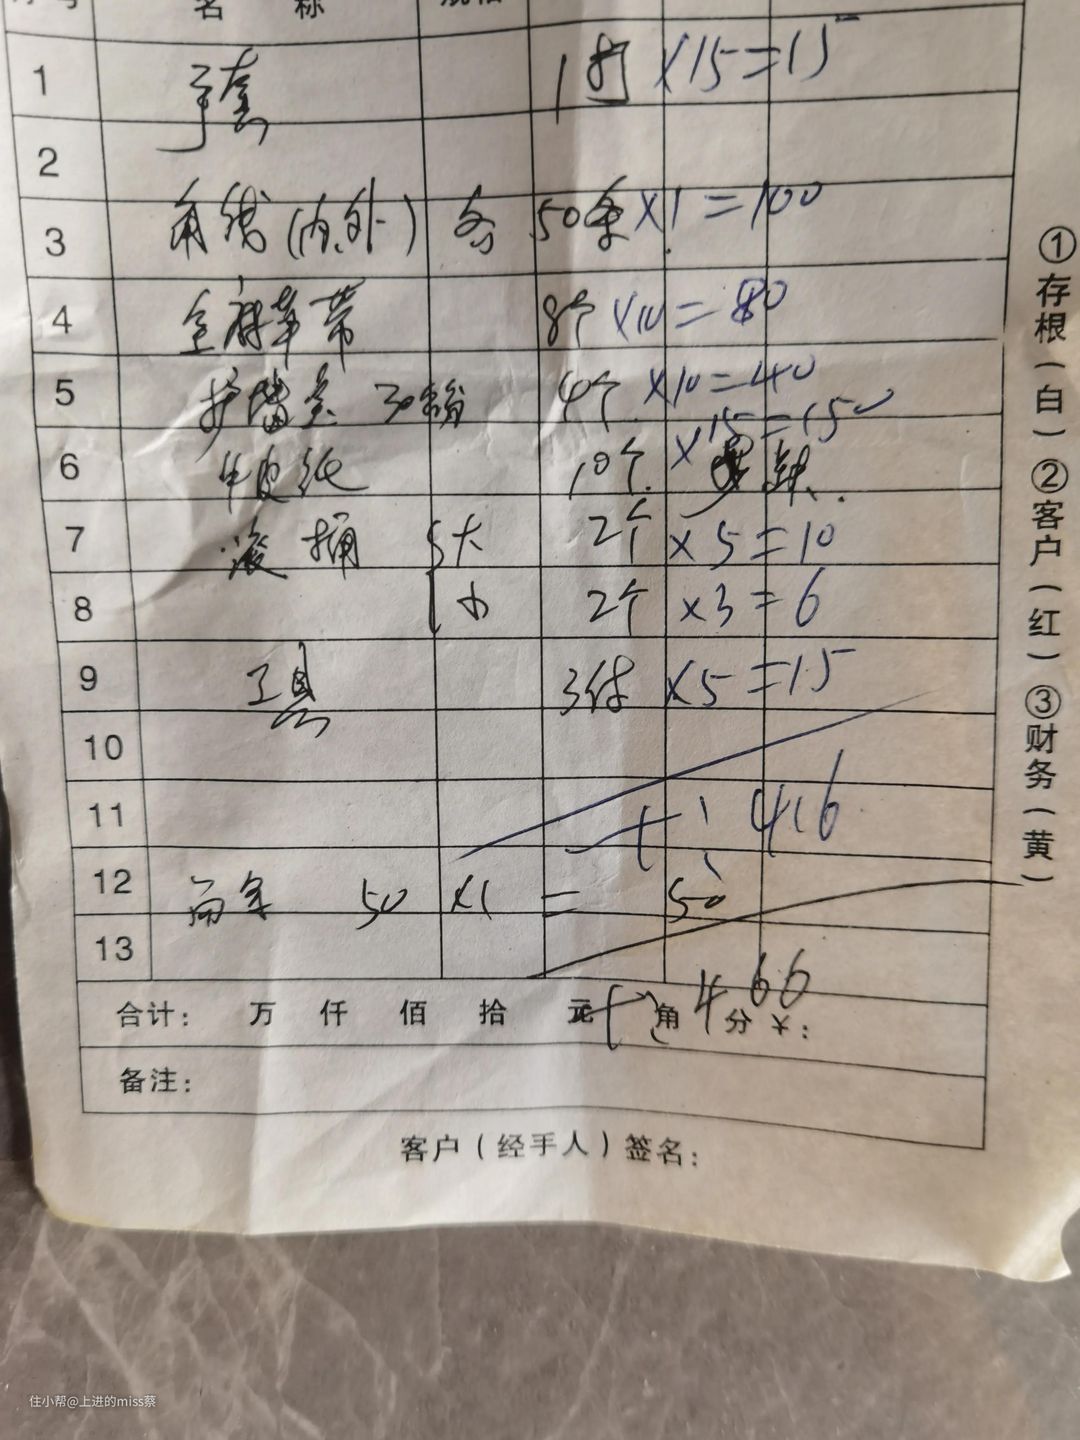 名 称
1 手套 1打 ×15=15
2
3 角线(内.外) 各 50条×1=100
4 全麻单带 8个×10=80
5 护墙 30 4个×10=40
6 牛皮纸 10个 ×15=150
7 滚捅 大 2个×5=10
8 小 2个×3=6
9 工具 3件×5=15
10
11 416
12 50 ×1 = 50
13
合计: 万 仟 佰 拾 元 角 分 ¥: 466
备注:
客户(经手人)签名:
①存根(白) ②客户(红) ③财务(黄)
住小帮@上进的miss蔡